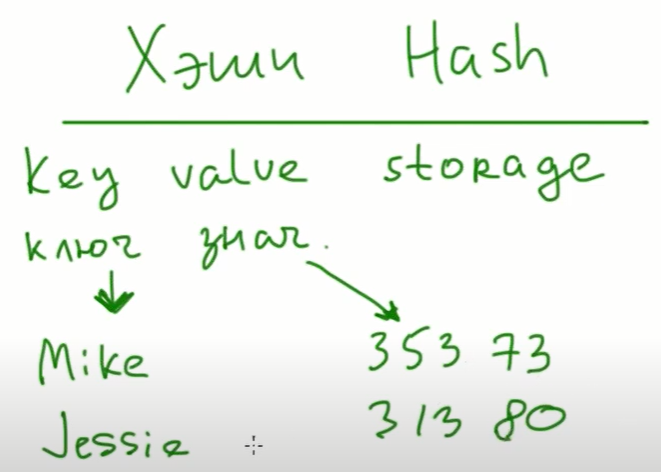 Хэши Hash
Key value storage
ключ знач.
Mike 353 73
Jessie 313 80